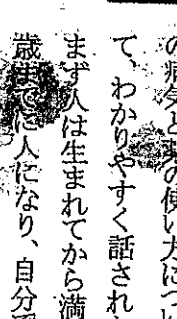 の病気と薬の使い方につい
て、わかりやすく話され
まず人は生まれてから満
歳までに人になり、自分で